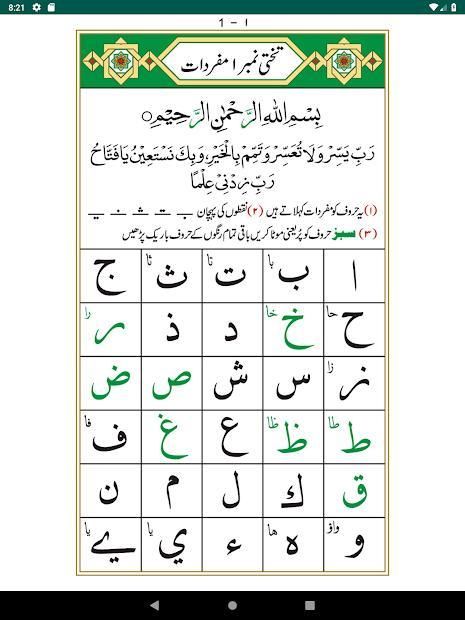 8:21
1 - ا
تختی نمبر ۱ مفردات
بِسْمِ اللّٰهِ الرَّحْمٰنِ الرَّحِيْمِ
رَبِّ يَسِّرْ وَلَا تُعَسِّرْ وَتَمِّمْ بِالْخَيْرِ، وَبِكَ نَسْتَعِيْنُ يَا فَتَّاحُ
رَبِّ زِدْنِيْ عِلْمًا
(۱) یہ حروف کو مفردات کہلاتے ہیں (۲) نقطوں کی پہچان ب ت ث ن ی
(۳) سبز حروف کو پُر یعنی موٹا کریں باقی تمام رنگوں کے حروف باریک پڑھیں
ا ب با ت تا ث ثا ج
ح حا خ خا د ذ ر را
ز زا س ش ص ض
ط طا ظ ظا ع غ ف فا
ق ك ل م ن
و واؤ ه ها ء ي يا ے يا